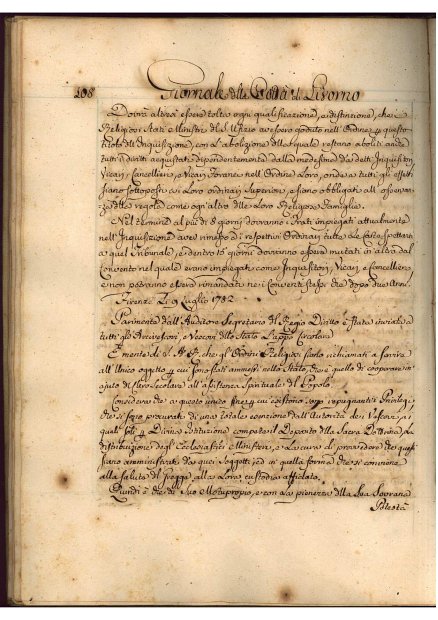 108 Giornale della Città di Livorno
Dovrà altresì essere tolta ogni qualificazione, e distinzione, che i
Religiosi Stati Ministri del S. Ufizio avessero goduto nell'Ordine p questo
titolo dell'Inquisizione, con l'abolizione della quale restano aboliti anche
tutti i diritti acquistati dipendentemente dalla medesima da detti Inquisitori
Vicarj Cancellieri, e Vicarj Foranei nell'Ordine Loro, onde a tutti gli effetti
siano sottoposti ai Loro ordinarj Superiori, e siano obbligati all'osservan-
za delle regole come ogn'altro delle Loro Religiose Famiglie.
Nel termine al più di 8 giorni dovranno i Frati impiegati attualmente
nell'Inquisizione aver rimesso ai respettivi Ordinarj tutte Le Carte spettanti
a quel Tribunale, e dentro 15 giorni dovranno essere mutati in altro dal
Convento nel quale erano impiegati come Inquisitori, Vicarj, e Cancellieri,
e non potranno essere rimandati nei Conventi stessi che dopo due Anni.
Firenze Li 9 Luglio 1782
Parimente dall'Auditore Segretario del Regio Diritto è stata inviata a
tutti gli Arcivescovi, e Vescovi dello Stato L'appo Circolare
È mente di S. A. R. che gli Ordini Religiosi siano richiamati a servire
all'Unico oggetto p cui sono stati ammessi nello Stato, che è quello di cooperare in
ajuto del Clero Secolare all'assistenza Spirituale del Popolo.
Considera che a questo unico fine p cui esistono sono repugnanti i Privilegj
che si sono procurati di una totale esenzione dall'Autorità dei Vescovi, ai
quali soli p Divina Istituzione compete il Deposito della Sacra Dottrina, La
distribuzione degl'Ecclesiastici Ministeri, e La cura di provvedere che questi
siano amministrati da quei Soggetti, ed in quella forma che si conviene
alla salute del Gregge alla Loro custodia affidato.
Quindi è che di Suo Motuproprio, e con La pienezza della Sua Sovrana
Potestà